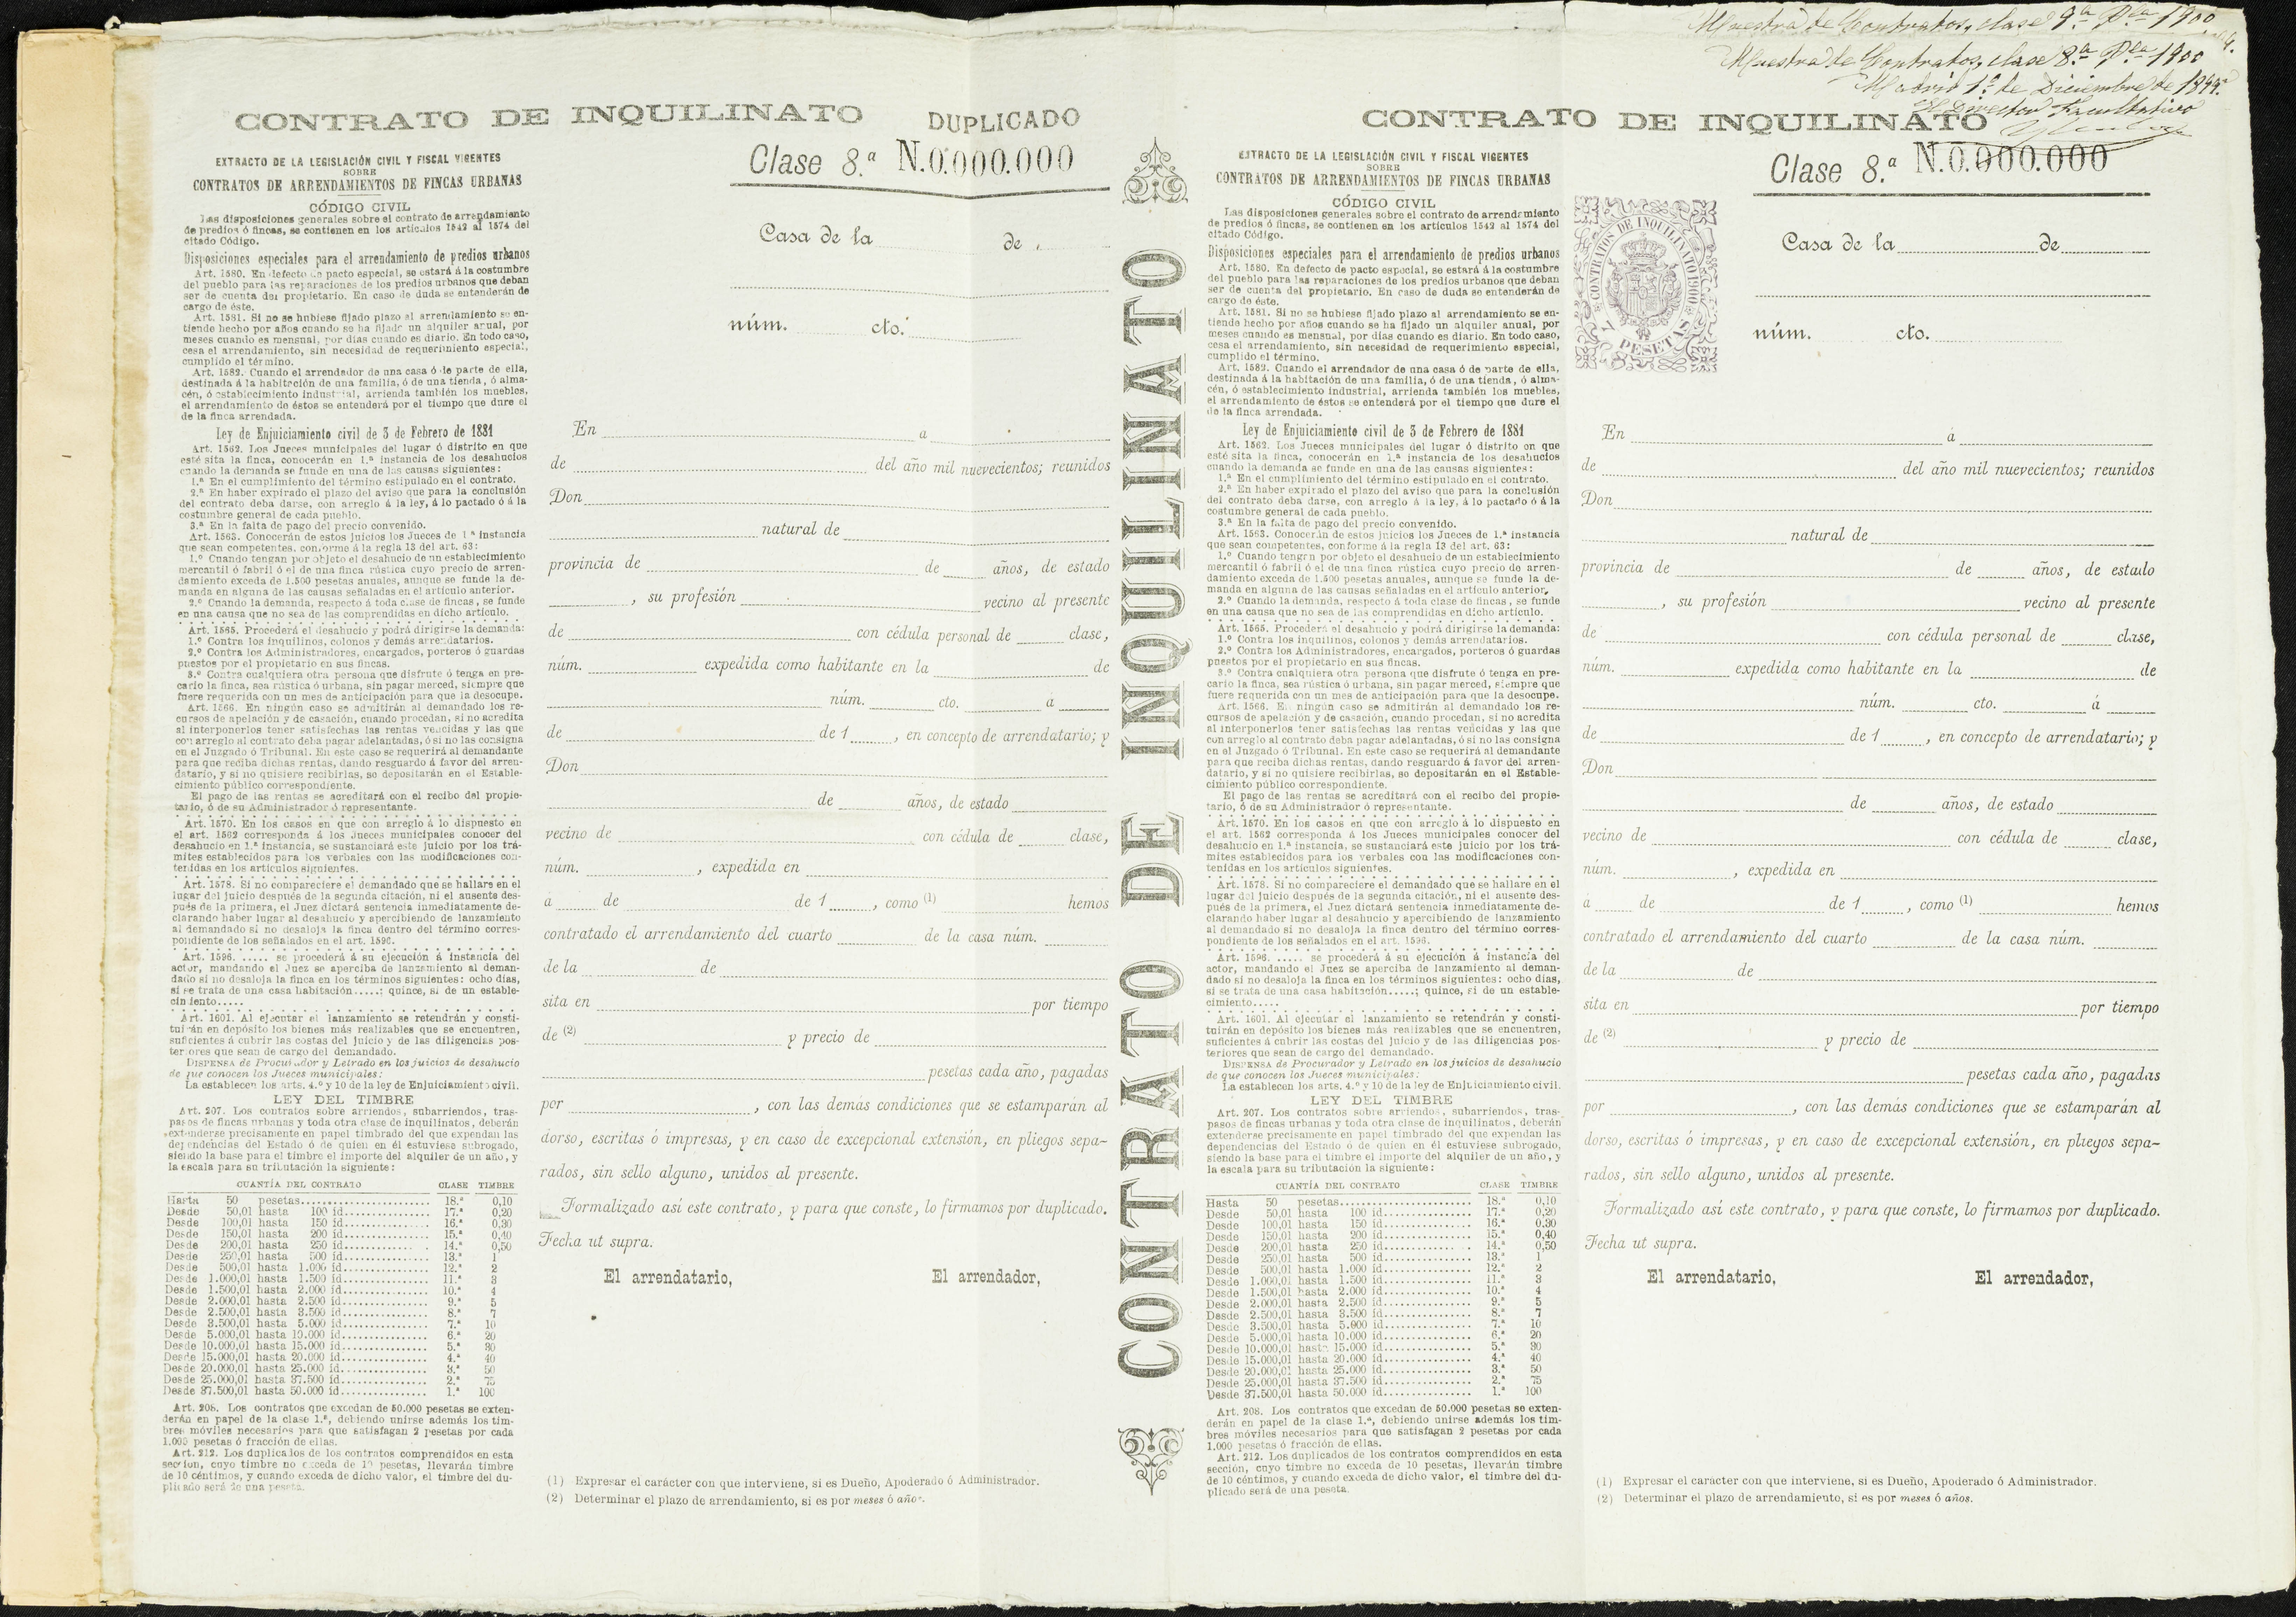 Muestra de Contratos, clase 9.ª Pta. 1900
Muestra de Contratos, clase 8.ª Pta. 1900
Madrid 1.º de Diciembre de 1899.
El Director Facultativo
CONTRATO DE INQUILINATO
DUPLICADO
Clase 8.ª N.0.000.000
EXTRACTO DE LA LEGISLACIÓN CIVIL Y FISCAL VIGENTES
SOBRE
CONTRATOS DE ARRENDAMIENTOS DE FINCAS URBANAS
CÓDIGO CIVIL
Las disposiciones generales sobre el contrato de arrendamiento
de predios ó fincas, se contienen en los artículos 1542 al 1574 del
citado Código.
Disposiciones especiales para el arrendamiento de predios urbanos
Art. 1580. En defecto de pacto especial, se estará á la costumbre
del pueblo para las reparaciones de los predios urbanos que deban
ser de cuenta del propietario. En caso de duda se entenderán de
cargo de éste.
Art. 1581. Si no se hubiese fijado plazo al arrendamiento se en-
tiende hecho por años cuando se ha fijado un alquiler anual, por
meses cuando es mensual, por días cuando es diario. En todo caso,
cesa el arrendamiento, sin necesidad de requerimiento especial,
cumplido el término.
Art. 1582. Cuando el arrendador de una casa ó de parte de ella,
destinada á la habitación de una familia, ó de una tienda, ó alma-
cén, ó establecimiento industrial, arrienda también los muebles,
el arrendamiento de éstos se entenderá por el tiempo que dure el
de la finca arrendada.
Ley de Enjuiciamiento civil de 3 de Febrero de 1881
Art. 1562. Los Jueces municipales del lugar ó distrito en que
esté sita la finca, conocerán en 1.ª instancia de los desahucios
cuando la demanda se funde en una de las causas siguientes:
1.ª En el cumplimiento del término estipulado en el contrato.
2.ª En haber expirado el plazo del aviso que para la conclusión
del contrato deba darse, con arreglo á la ley, á lo pactado ó á la
costumbre general de cada pueblo.
3.ª En la falta de pago del precio convenido.
Art. 1563. Conocerán de estos juicios los Jueces de 1.ª instancia
que sean competentes, conforme á la regla 13 del art. 63:
1.º Cuando tengan por objeto el desahucio de un establecimiento
mercantil ó fabril ó el de una finca rústica cuyo precio de arren-
damiento exceda de 1.500 pesetas anuales, aunque se funde la de-
manda en alguna de las causas señaladas en el artículo anterior.
2.º Cuando la demanda, respecto á toda clase de fincas, se funde
en una causa que no sea de las comprendidas en dicho artículo.
Art. 1565. Procederá el desahucio y podrá dirigirse la demanda:
1.º Contra los inquilinos, colonos y demás arrendatarios.
2.º Contra los Administradores, encargados, porteros ó guardas
puestos por el propietario en sus fincas.
3.º Contra cualquiera otra persona que disfrute ó tenga en pre-
cario la finca, sea rústica ó urbana, sin pagar merced, siempre que
fuere requerida con un mes de anticipación para que la desocupe.
Art. 1566. En ningún caso se admitirán al demandado los re-
cursos de apelación y de casación, cuando procedan, si no acredita
al interponerlos tener satisfechas las rentas vencidas y las que
con arreglo al contrato deba pagar adelantadas, ó si no las consigna
en el Juzgado ó Tribunal. En este caso se requerirá al demandante
para que reciba dichas rentas, dando resguardo á favor del arren-
datario, y si no quisiere recibirlas, se depositarán en el Estable-
cimiento público correspondiente.
El pago de las rentas se acreditará con el recibo del propie-
tario, ó de su Administrador ó representante.
Art. 1570. En los casos en que con arreglo á lo dispuesto en
el art. 1562 corresponda á los Jueces municipales conocer del
desahucio en 1.ª instancia, se sustanciará este juicio por los trá-
mites establecidos para los verbales con las modificaciones con-
tenidas en los artículos siguientes.
Art. 1578. Si no compareciere el demandado que se hallare en el
lugar del juicio después de la segunda citación, ni el ausente des-
pués de la primera, el Juez dictará sentencia inmediatamente de-
clarando haber lugar al desahucio y apercibiendo de lanzamiento
al demandado si no desaloja la finca dentro del término corres-
pondiente de los señalados en el art. 1596.
Art. 1596. ..... se procederá á su ejecución á instancia del
actor, mandando el Juez se aperciba de lanzamiento al deman-
dado si no desaloja la finca en los términos siguientes: ocho días,
si se trata de una casa habitación.....; quince, si de un estable-
cimiento.....
Art. 1601. Al ejecutar el lanzamiento se retendrán y consti-
tuirán en depósito los bienes más realizables que se encuentren,
suficientes á cubrir las costas del juicio y de las diligencias pos-
teriores que sean de cargo del demandado.
DISPENSA de Procurador y Letrado en los juicios de desahucio
de que conocen los Jueces municipales:
La establecen los arts. 4.º y 10 de la ley de Enjuiciamiento civil.
LEY DEL TIMBRE
Art. 207. Los contratos sobre arriendos, subarriendos, tras-
pasos de fincas urbanas y toda otra clase de inquilinatos, deberán
extenderse precisamente en papel timbrado del que expendan las
dependencias del Estado ó de quien en él estuviese subrogado,
siendo la base para el timbre el importe del alquiler de un año, y
la escala para su tributación la siguiente:
CUANTÍA DEL CONTRATO CLASE TIMBRE
Hasta 50 pesetas 18.ª 0,10
Desde 50,01 hasta 100 id. 17.ª 0,20
Desde 100,01 hasta 150 id. 16.ª 0,30
Desde 150,01 hasta 200 id. 15.ª 0,40
Desde 200,01 hasta 250 id. 14.ª 0,50
Desde 250,01 hasta 500 id. 13.ª 1
Desde 500,01 hasta 1.000 id. 12.ª 2
Desde 1.000,01 hasta 1.500 id. 11.ª 3
Desde 1.500,01 hasta 2.000 id. 10.ª 4
Desde 2.000,01 hasta 2.500 id. 9.ª 5
Desde 2.500,01 hasta 3.500 id. 8.ª 7
Desde 3.500,01 hasta 5.000 id. 7.ª 10
Desde 5.000,01 hasta 10.000 id. 6.ª 20
Desde 10.000,01 hasta 15.000 id. 5.ª 30
Desde 15.000,01 hasta 20.000 id. 4.ª 40
Desde 20.000,01 hasta 25.000 id. 3.ª 50
Desde 25.000,01 hasta 37.500 id. 2.ª 75
Desde 37.500,01 hasta 50.000 id. 1.ª 100
Art. 208. Los contratos que excedan de 50.000 pesetas se exten-
derán en papel de la clase 1.ª, debiendo unirse además los tim-
bres móviles necesarios para que satisfagan 2 pesetas por cada
1.000 pesetas ó fracción de ellas.
Art. 212. Los duplicados de los contratos comprendidos en esta
sección, cuyo timbre no exceda de 10 pesetas, llevarán timbre
de 10 céntimos, y cuando exceda de dicho valor, el timbre del du-
plicado será de una peseta.
Casa de la de
núm. cto.
En á
de del año mil nuevecientos; reunidos
Don
natural de
provincia de de años, de estado
, su profesión vecino al presente
de con cédula personal de clase,
núm. expedida como habitante en la de
núm. cto. á
de de 1 , en concepto de arrendatario; y
Don
de años, de estado
vecino de con cédula de clase,
núm. , expedida en
á de de 1 , como (1) hemos
contratado el arrendamiento del cuarto de la casa núm.
de la de
sita en por tiempo
de (2) y precio de
pesetas cada año, pagadas
por , con las demás condiciones que se estamparán al
dorso, escritas ó impresas, y en caso de excepcional extensión, en pliegos sepa-
rados, sin sello alguno, unidos al presente.
Formalizado así este contrato, y para que conste, lo firmamos por duplicado.
Fecha ut supra.
El arrendatario, El arrendador,
(1) Expresar el carácter con que interviene, si es Dueño, Apoderado ó Administrador.
(2) Determinar el plazo de arrendamiento, si es por meses ó años.
CONTRATO DE INQUILINATO
CONTRATO DE INQUILINATO
Clase 8.ª N.0.000.000
EXTRACTO DE LA LEGISLACIÓN CIVIL Y FISCAL VIGENTES
SOBRE
CONTRATOS DE ARRENDAMIENTOS DE FINCAS URBANAS
CÓDIGO CIVIL
Las disposiciones generales sobre el contrato de arrendamiento
de predios ó fincas, se contienen en los artículos 1542 al 1574 del
citado Código.
Disposiciones especiales para el arrendamiento de predios urbanos
Art. 1580. En defecto de pacto especial, se estará á la costumbre
del pueblo para las reparaciones de los predios urbanos que deban
ser de cuenta del propietario. En caso de duda se entenderán de
cargo de éste.
Art. 1581. Si no se hubiese fijado plazo al arrendamiento se en-
tiende hecho por años cuando se ha fijado un alquiler anual, por
meses cuando es mensual, por días cuando es diario. En todo caso,
cesa el arrendamiento, sin necesidad de requerimiento especial,
cumplido el término.
Art. 1582. Cuando el arrendador de una casa ó de parte de ella,
destinada á la habitación de una familia, ó de una tienda, ó alma-
cén, ó establecimiento industrial, arrienda también los muebles,
el arrendamiento de éstos se entenderá por el tiempo que dure el
de la finca arrendada.
Ley de Enjuiciamiento civil de 3 de Febrero de 1881
Art. 1562. Los Jueces municipales del lugar ó distrito en que
esté sita la finca, conocerán en 1.ª instancia de los desahucios
cuando la demanda se funde en una de las causas siguientes:
1.ª En el cumplimiento del término estipulado en el contrato.
2.ª En haber expirado el plazo del aviso que para la conclusión
del contrato deba darse, con arreglo á la ley, á lo pactado ó á la
costumbre general de cada pueblo.
3.ª En la falta de pago del precio convenido.
Art. 1563. Conocerán de estos juicios los Jueces de 1.ª instancia
que sean competentes, conforme á la regla 13 del art. 63:
1.º Cuando tengan por objeto el desahucio de un establecimiento
mercantil ó fabril ó el de una finca rústica cuyo precio de arren-
damiento exceda de 1.500 pesetas anuales, aunque se funde la de-
manda en alguna de las causas señaladas en el artículo anterior.
2.º Cuando la demanda, respecto á toda clase de fincas, se funde
en una causa que no sea de las comprendidas en dicho artículo.
Art. 1565. Procederá el desahucio y podrá dirigirse la demanda:
1.º Contra los inquilinos, colonos y demás arrendatarios.
2.º Contra los Administradores, encargados, porteros ó guardas
puestos por el propietario en sus fincas.
3.º Contra cualquiera otra persona que disfrute ó tenga en pre-
cario la finca, sea rústica ó urbana, sin pagar merced, siempre que
fuere requerida con un mes de anticipación para que la desocupe.
Art. 1566. En ningún caso se admitirán al demandado los re-
cursos de apelación y de casación, cuando procedan, si no acredita
al interponerlos tener satisfechas las rentas vencidas y las que
con arreglo al contrato deba pagar adelantadas, ó si no las consigna
en el Juzgado ó Tribunal. En este caso se requerirá al demandante
para que reciba dichas rentas, dando resguardo á favor del arren-
datario, y si no quisiere recibirlas, se depositarán en el Estable-
cimiento público correspondiente.
El pago de las rentas se acreditará con el recibo del propie-
tario, ó de su Administrador ó representante.
Art. 1570. En los casos en que con arreglo á lo dispuesto en
el art. 1562 corresponda á los Jueces municipales conocer del
desahucio en 1.ª instancia, se sustanciará este juicio por los trá-
mites establecidos para los verbales con las modificaciones con-
tenidas en los artículos siguientes.
Art. 1578. Si no compareciere el demandado que se hallare en el
lugar del juicio después de la segunda citación, ni el ausente des-
pués de la primera, el Juez dictará sentencia inmediatamente de-
clarando haber lugar al desahucio y apercibiendo de lanzamiento
al demandado si no desaloja la finca dentro del término corres-
pondiente de los señalados en el art. 1596.
Art. 1596. ..... se procederá á su ejecución á instancia del
actor, mandando el Juez se aperciba de lanzamiento al deman-
dado si no desaloja la finca en los términos siguientes: ocho días,
si se trata de una casa habitación.....; quince, si de un estable-
cimiento.....
Art. 1601. Al ejecutar el lanzamiento se retendrán y consti-
tuirán en depósito los bienes más realizables que se encuentren,
suficientes á cubrir las costas del juicio y de las diligencias pos-
teriores que sean de cargo del demandado.
DISPENSA de Procurador y Letrado en los juicios de desahucio
de que conocen los Jueces municipales:
La establecen los arts. 4.º y 10 de la ley de Enjuiciamiento civil.
LEY DEL TIMBRE
Art. 207. Los contratos sobre arriendos, subarriendos, tras-
pasos de fincas urbanas y toda otra clase de inquilinatos, deberán
extenderse precisamente en papel timbrado del que expendan las
dependencias del Estado ó de quien en él estuviese subrogado,
siendo la base para el timbre el importe del alquiler de un año, y
la escala para su tributación la siguiente:
CUANTÍA DEL CONTRATO CLASE TIMBRE
Hasta 50 pesetas 18.ª 0,10
Desde 50,01 hasta 100 id. 17.ª 0,20
Desde 100,01 hasta 150 id. 16.ª 0,30
Desde 150,01 hasta 200 id. 15.ª 0,40
Desde 200,01 hasta 250 id. 14.ª 0,50
Desde 250,01 hasta 500 id. 13.ª 1
Desde 500,01 hasta 1.000 id. 12.ª 2
Desde 1.000,01 hasta 1.500 id. 11.ª 3
Desde 1.500,01 hasta 2.000 id. 10.ª 4
Desde 2.000,01 hasta 2.500 id. 9.ª 5
Desde 2.500,01 hasta 3.500 id. 8.ª 7
Desde 3.500,01 hasta 5.000 id. 7.ª 10
Desde 5.000,01 hasta 10.000 id. 6.ª 20
Desde 10.000,01 hasta 15.000 id. 5.ª 30
Desde 15.000,01 hasta 20.000 id. 4.ª 40
Desde 20.000,01 hasta 25.000 id. 3.ª 50
Desde 25.000,01 hasta 37.500 id. 2.ª 75
Desde 37.500,01 hasta 50.000 id. 1.ª 100
Art. 208. Los contratos que excedan de 50.000 pesetas se exten-
derán en papel de la clase 1.ª, debiendo unirse además los tim-
bres móviles necesarios para que satisfagan 2 pesetas por cada
1.000 pesetas ó fracción de ellas.
Art. 212. Los duplicados de los contratos comprendidos en esta
sección, cuyo timbre no exceda de 10 pesetas, llevarán timbre
de 10 céntimos, y cuando exceda de dicho valor, el timbre del du-
plicado será de una peseta.
CONTRATOS DE INQUILINATO 1900
7 PESETAS
Casa de la de
núm. cto.
En á
de del año mil nuevecientos; reunidos
Don
natural de
provincia de de años, de estado
, su profesión vecino al presente
de con cédula personal de clase,
núm. expedida como habitante en la de
núm. cto. á
de de 1 , en concepto de arrendatario; y
Don
de años, de estado
vecino de con cédula de clase,
núm. , expedida en
á de de 1 , como (1) hemos
contratado el arrendamiento del cuarto de la casa núm.
de la de
sita en por tiempo
de (2) y precio de
pesetas cada año, pagadas
por , con las demás condiciones que se estamparán al
dorso, escritas ó impresas, y en caso de excepcional extensión, en pliegos sepa-
rados, sin sello alguno, unidos al presente.
Formalizado así este contrato, y para que conste, lo firmamos por duplicado.
Fecha ut supra.
El arrendatario, El arrendador,
(1) Expresar el carácter con que interviene, si es Dueño, Apoderado ó Administrador.
(2) Determinar el plazo de arrendamiento, si es por meses ó años.